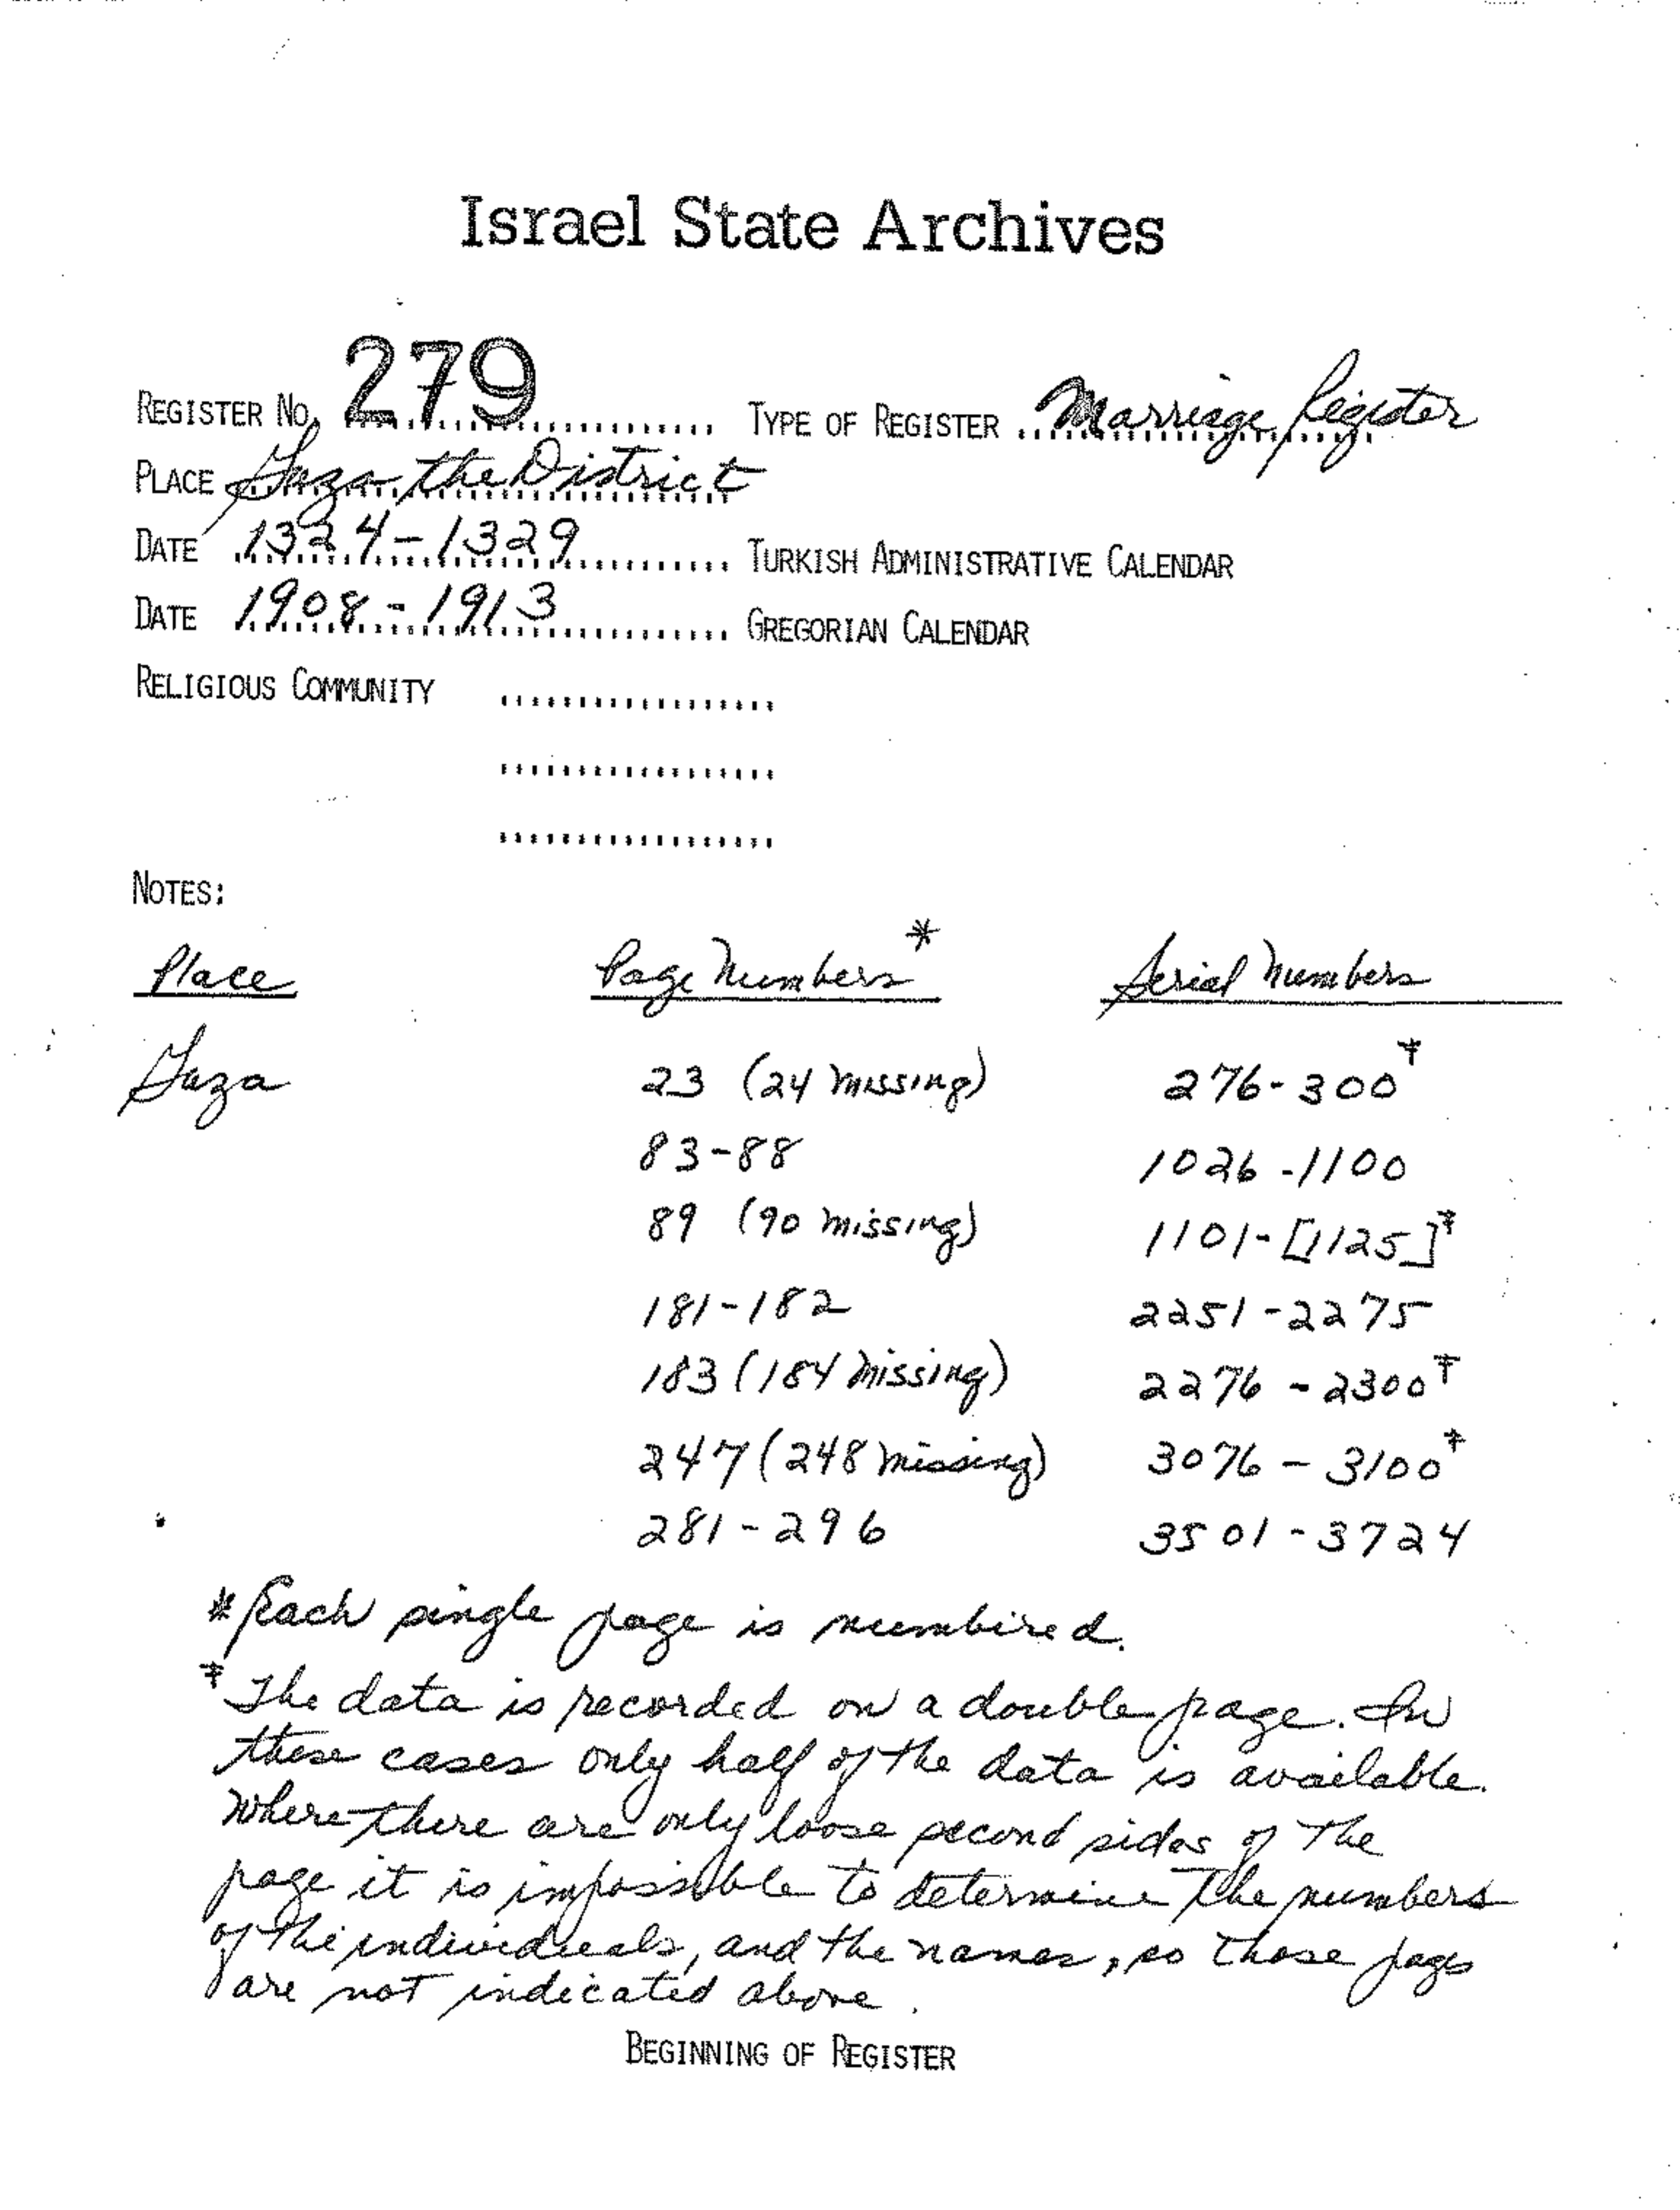 Israel State Archives
REGISTER NO. 279 TYPE OF REGISTER Marriage Register
PLACE Gaza, the District
DATE 1324-1329 TURKISH ADMINISTRATIVE CALENDAR
DATE 1908-1913 GREGORIAN CALENDAR
RELIGIOUS COMMUNITY
NOTES:
Place Page Numbers* Serial Numbers
Gaza 23 (24 missing) 276-300‡
83-88 1026-1100
89 (90 missing) 1101-[1125]‡
181-182 2251-2275
183 (184 missing) 2276-2300‡
247 (248 missing) 3076-3100‡
281-296 3501-3724
*Each single page is numbered.
‡ The data is recorded on a double page. In
these cases only half of the data is available.
Where there are only loose second sides of the
page it is impossible to determine the numbers
of the individuals, and the names, so those pages
are not indicated above.
BEGINNING OF REGISTER